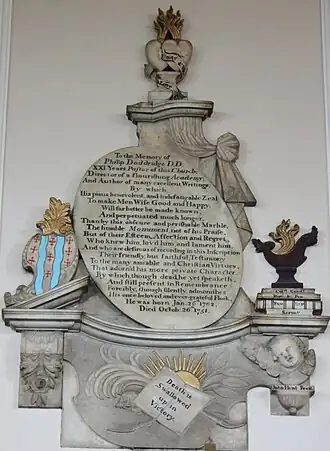 To the Memory of
Philip Doddridge D.D.
XXI Years Pastor of this Church,
Director of a flourishing Academy,
And Author of many excellent Writings,
By which
His pious benevolent, and indefatigable Zeal
To make Men Wise Good and Happy,
Will far better be made known,
And perpetuated much longer,
Than by this obscure and perishable Marble,
The humble Monument not of his Praise,
But of their Esteem, Affection and Regret,
Who knew him, lov'd him and lament him,
And who are desirous of recording in this Inscription
Their friendly, but faithful Testimony
To the many amiable and Christian Virtues,
That adorn'd his more private Character,
By which, though dead, he yet Speaketh,
And still present in Remembrance
Forcibly, though silently, Admonisheth
His once beloved, and ever-grateful Flock.
He was born Jun. 26 1702.
Died Octob. 26 1751.
Death is
Swallowed
up in
Victory.